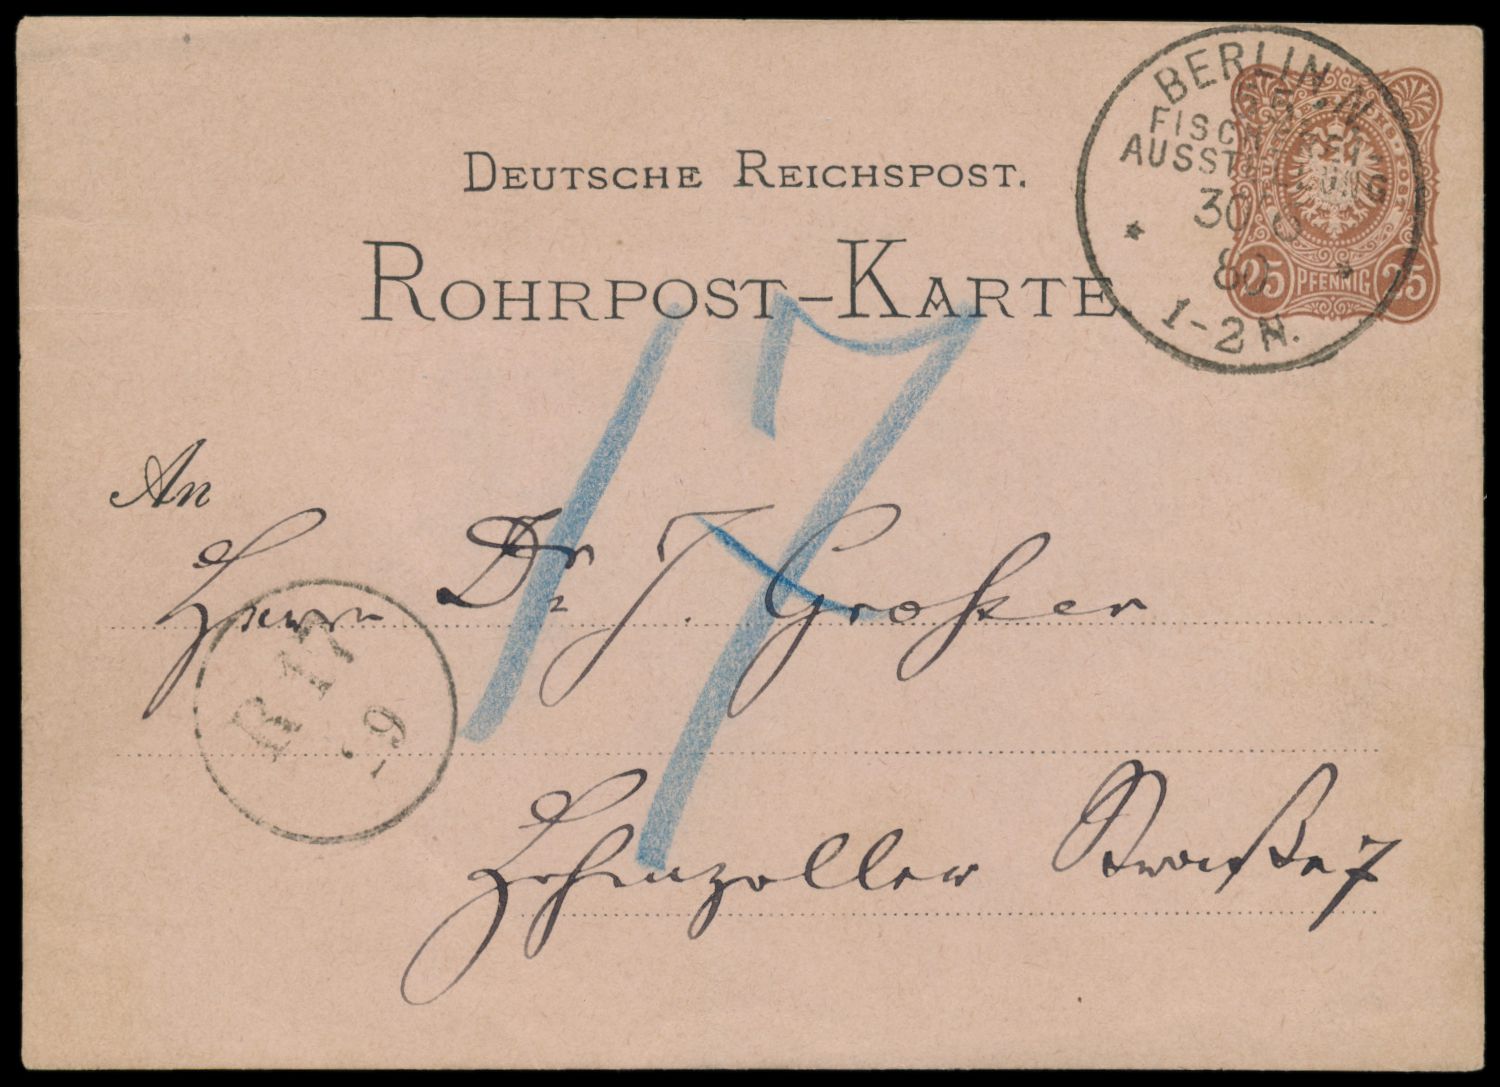 DEUTSCHE REICHSPOST.
ROHRPOST-KARTE
BERLIN. N
FISCHEREI
AUSSTELLUNG
30
80
1-2 N.
25 PFENNIG 25
17
An
Herrn Dr J. Großer
R 17
-9
Hohenzoller Straße 7